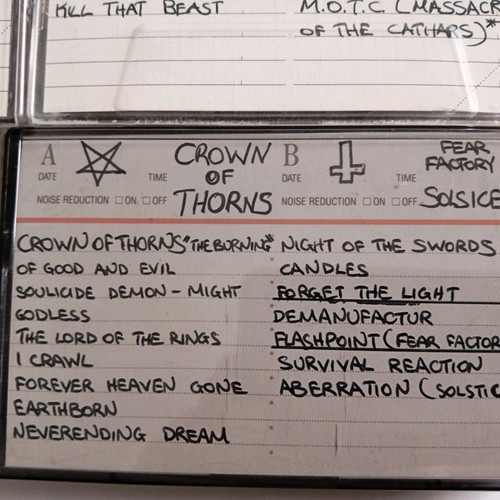 KILL THAT BEAST
M.O.T.C. (MASSACR
OF THE CATHARS)*
A
DATE
TIME
NOISE REDUCTION □ ON □ OFF
CROWN
OF
THORNS
B
DATE
TIME
NOISE REDUCTION □ ON □ OFF
FEAR
FACTORY
SOLSICE
CROWN OF THORNS "THE BURNING"
OF GOOD AND EVIL
SOULICIDE DEMON - MIGHT
GODLESS
THE LORD OF THE RINGS
I CRAWL
FOREVER HEAVEN GONE
EARTHBORN
NEVERENDING DREAM
NIGHT OF THE SWORDS
CANDLES
FORGET THE LIGHT
DEMANUFACTUR
FLASHPOINT (FEAR FACTOR
SURVIVAL REACTION
ABERRATION (SOLSTIC